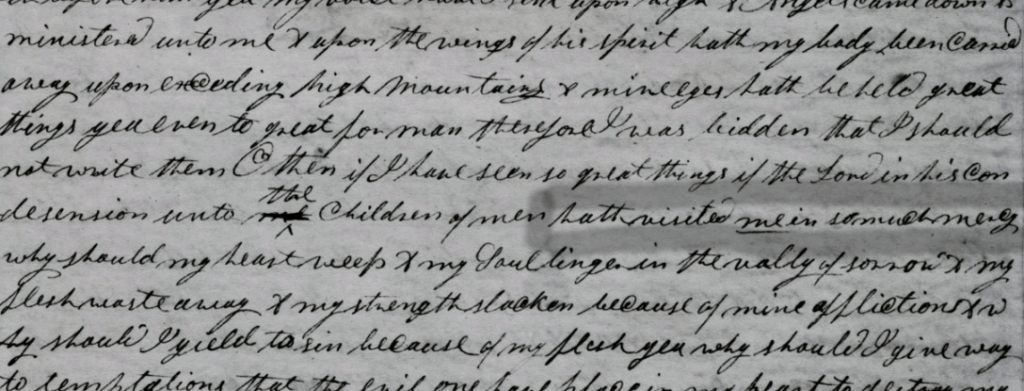 yea my voice upon high & Angels came down &
ministerd unto me & upon the wings of his spirit hath my body been carried
away upon exceeding high mountains & mine eyes hath beheld great
things yea even to great for man therefore I was bidden that I should
not write them O then if I have seen so great things if the Lord in his con
desension unto the children of men hath visited me in so much mercy
why should my heart weep & my Soul linger in the vally of sorrow & my
flesh waste away & my strength slacken because of mine afflictions & w
hy should I yield to sin because of my flesh yea why should I give way
to temptations that the evil one have place in my heart to destroy my